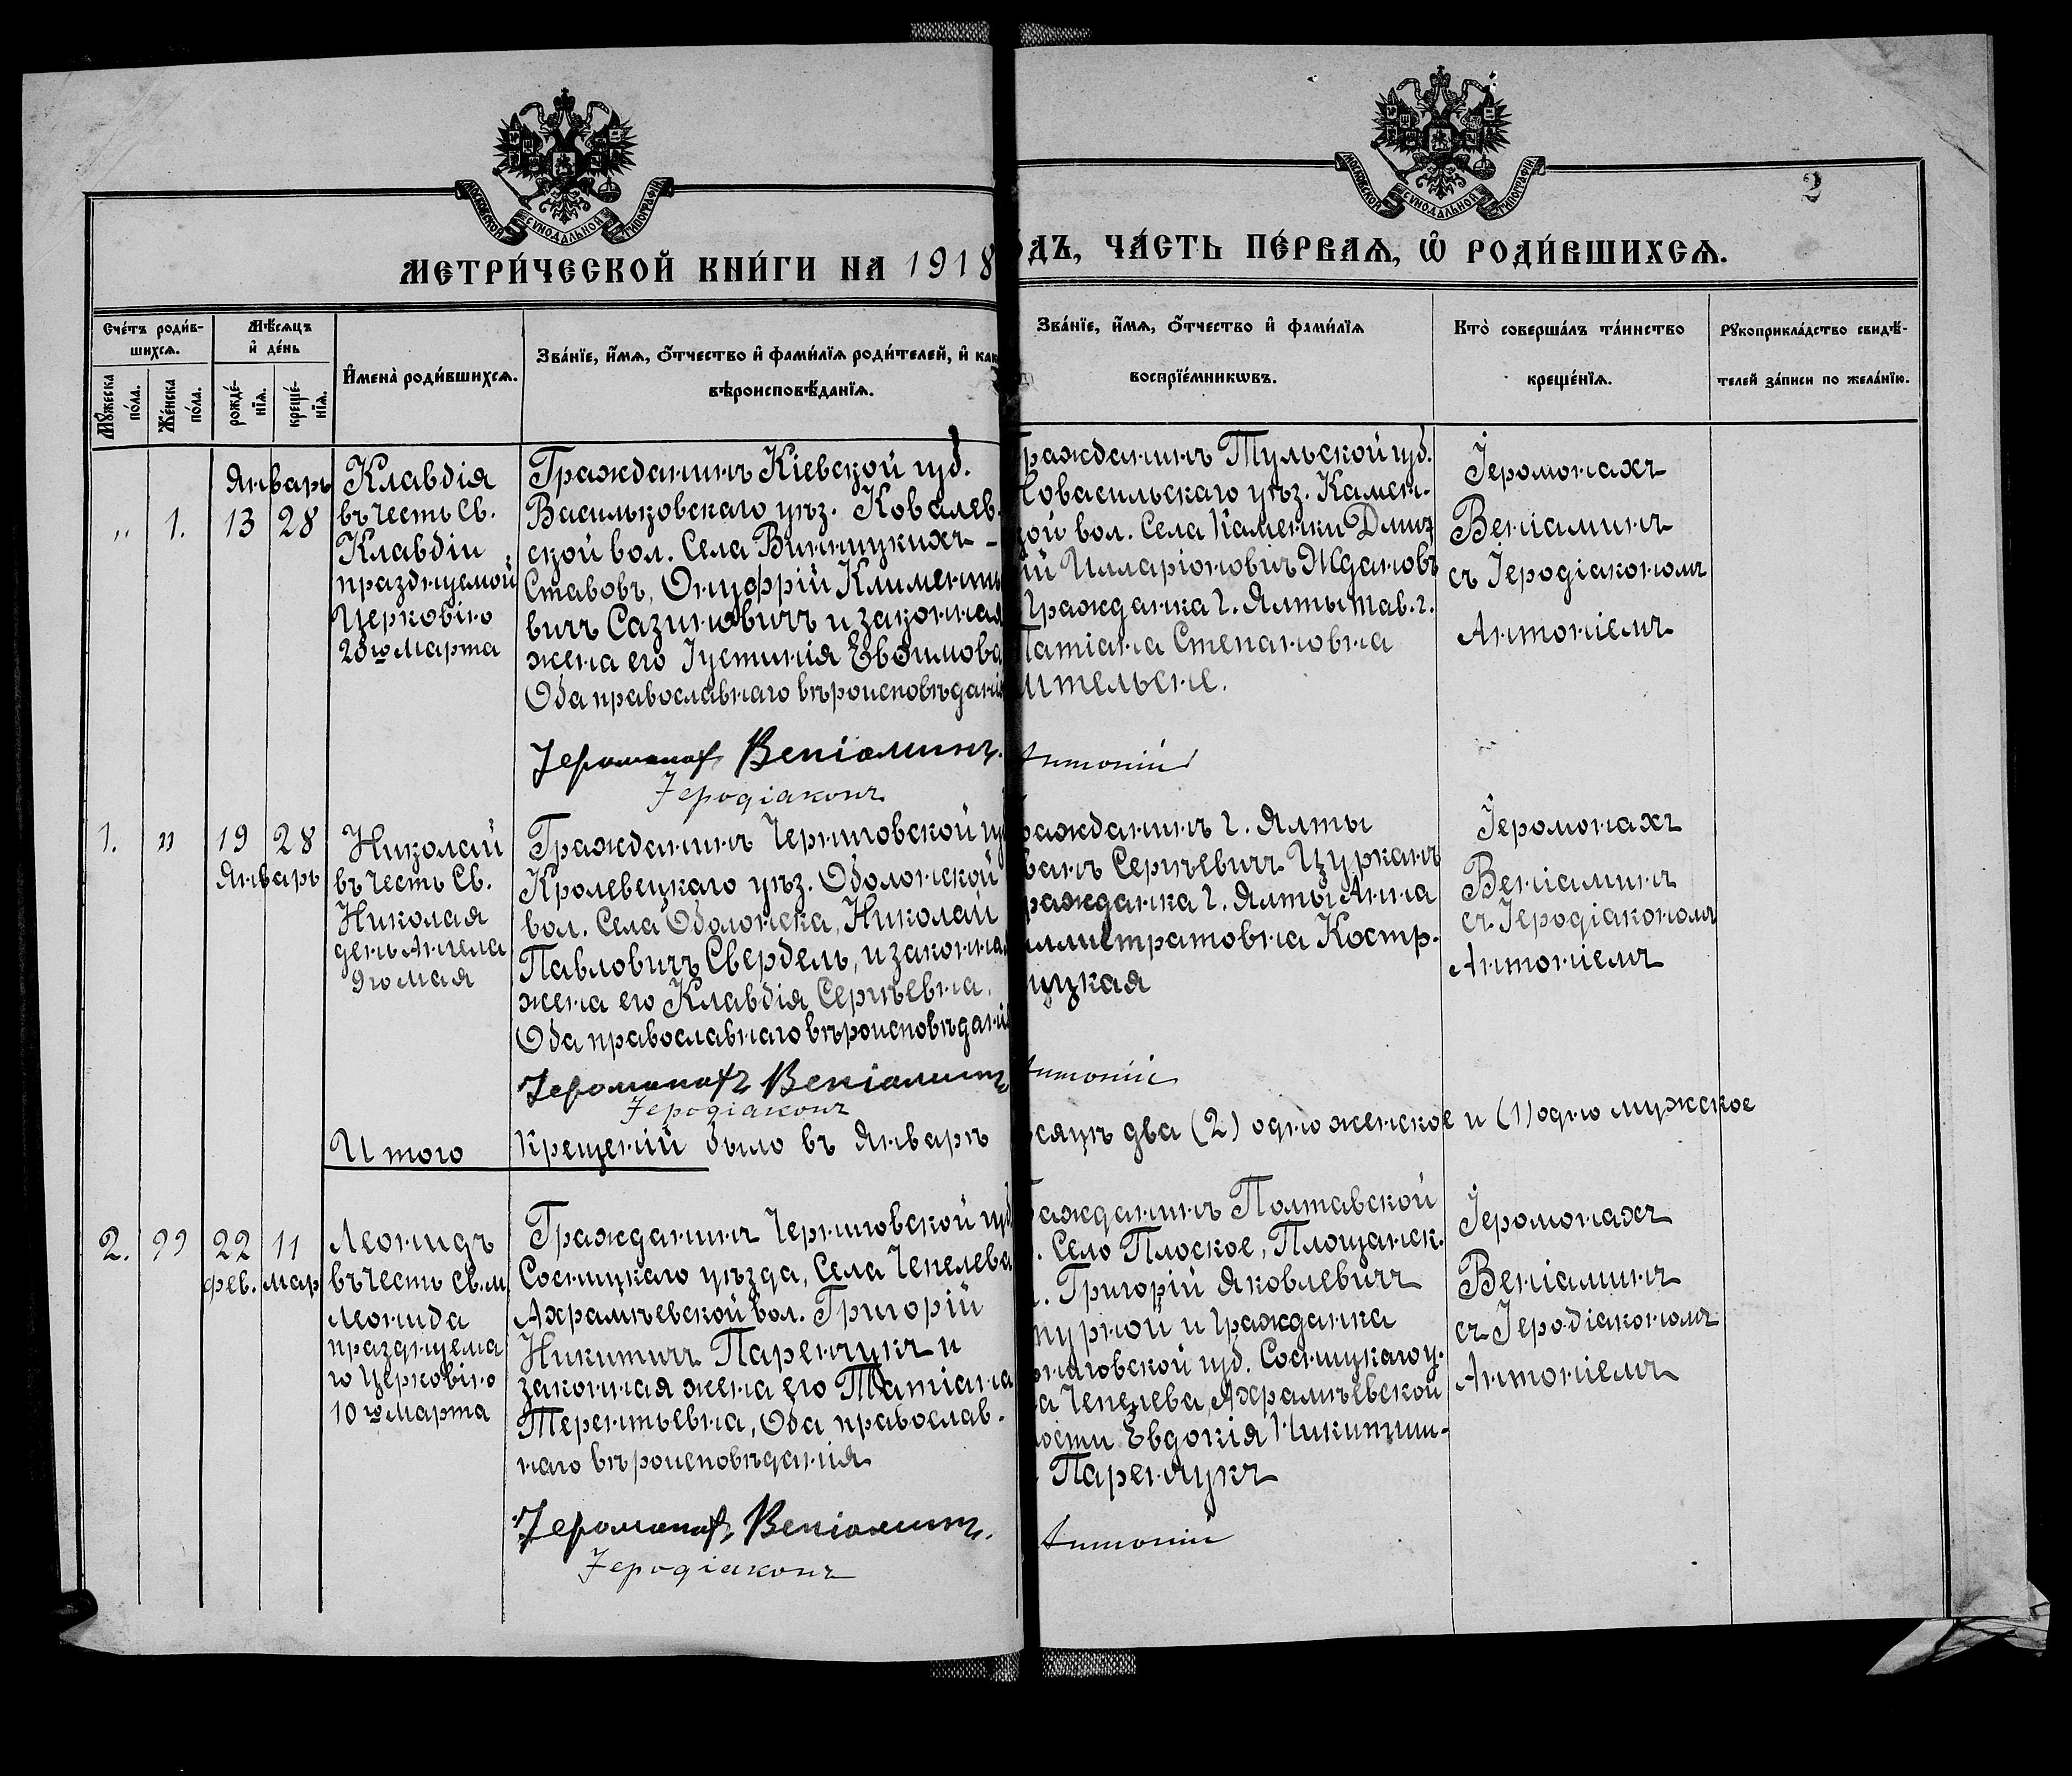 МОСКОВСКОЙ СУНОДАЛЬНОЙ ТИПОГРАФІИ
МОСКОВСКОЙ СУНОДАЛЬНОЙ ТИПОГРАФІИ
2
МЕТРИ́ЧЕСКОЙ КНИ́ГИ НА 1918
ОДЪ, ЧА́СТЬ ПЕ́РВАѦ, Ѡ РОДИ́ВШИХСѦ.
Сче́тъ роди́в-
шихсѧ.
Мꙋ́жеска по́ла.
Же́нска по́ла.
Мѣ́сѧцъ
и҆ де́нь
рожде́-
нїѧ.
креще́-
нїѧ.
И҆мена̀ роди́вшихсѧ.
Зва́нїе, и҆́мѧ, ѻ҆́тчество и҆ фами́лїѧ роди́телей, и҆ как
вѣроисповѣ́данїѧ.
Зва́нїе, и҆́мѧ, ѻ҆́тчество и҆ фами́лїѧ
воспрїе́мникѡвъ.
Кто̀ соверша́лъ та́инство
креще́нїѧ.
Рꙋкоприкла́дство свидѣ́-
телей за́писи по жела́нїю.
" 1. Январь 13 28
Клавдія
въ честь Св.
Клавдіи
празднуемой
Церковію
20го Марта
Гражданинъ Кіевской губ.
Васильковскаго уѣз. Ковалев-
ской вол. Села Винницкихъ-
Ставовъ, Онуфрій Клименть
вичъ Сазиновичъ и законная
жена его Іустинія Евѳимова
Оба православнаго вѣроисповѣдані
Іеромонахъ Веніаминъ.
Іеродіаконъ
ражданинъ Тульской губ.
Новосильскаго уѣз. Камен-
кой вол. Села Каменки Дмит
ій Илларіоновичъ Ждановъ
Гражданка г. Ялты Тав. г.
Татіана Степановна
ительсне.
Антоній
Іеромонахъ
Веніаминъ
съ Іеродіакономъ
Антоніемъ
1. " 19 28
Январь
Николай
въ честь Св.
Николая
день Ангела
9го мая
Гражданинъ Черниговской гу
Кролевецкаго уѣз. Оболонской
вол. Села Оболонска, Николай
Павловичъ Свердель, и законна
жена его Клавдія Сергѣевна.
Оба православнаго вѣроисповѣдані
Іеромонахъ Веніаминъ
Іеродіаконъ
ражданинъ г. Ялты
ванъ Сергѣевичъ Цурканъ
ражданка г. Ялты Анна
ллистратовна Костр.
ицкая
Антоній
Іеромонахъ
Веніаминъ
съ Іеродіакономъ
Антоніемъ
Итого крещеній было въ Январѣ
сяцѣ два (2) одно женское и (1) одно мужское
2. " 22 11
фев. мар
Леонидъ
въ честь св. м.
Леонида
празднуема
го Церковію
10го Марта
Гражданинъ Черниговской губ
Сосницкаго уѣзда, Села Чепелева
Ахрамѣевской вол. Григорій
Никитичъ Паренчукъ и
законная жена его Татіана
Терентьевна, Оба православ-
наго вѣроисповѣданія
Іеромонахъ Веніаминъ.
Іеродіаконъ
ажданинъ Полтавской
. Село Плоское, Площанск.
. Григорій Яковлевичъ
турной и Гражданка
рниговской губ. Сосницкаго у.
а Чепелева, Ахрамѣевской
лости Евдокія Никитиш-
Паренчукъ
Антоній
Іеромонахъ
Веніаминъ
съ Іеродіакономъ
Антоніемъ